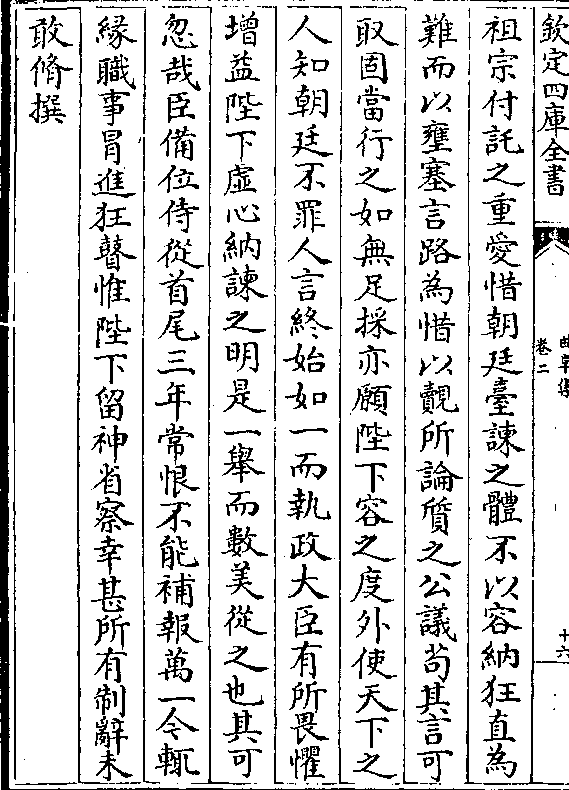 欽定四庫全書
曲阜集
卷二
十六
祖宗付託之重愛惜朝廷臺諫之體不以容納狂直為
難而以壅塞言路為惜以覿所論質之公議茍其言可
取固當行之如無足採亦願陛下容之度外使天下之
人知朝廷不罪人言終始如一而執政大臣有所畏懼
增益陛下虛心納諫之明是一舉而數美從之也其可
忽哉臣備位侍從首尾三年常恨不能補報萬一今輒
緣職事冒進狂瞽惟陛下留神省察幸甚所有制辭未
敢脩撰